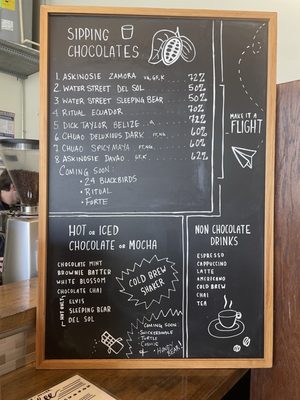 SIPPING
CHOCOLATES
1. ASKINOSIE ZAMORA 72%
2. WATER STREET DEL SOL 50%
3. WATER STREET SLEEPING BEAR 50%
4. RITUAL ECUADOR 70%
5. DICK TAYLOR BELIZE 72%
6. CHUAO DELUXIOUS DARK 60%
7. CHUAO SPICY MAYA 60%
8. ASKINOSIE DAVAO 62%
COMING SOON:
• 24 BLACKBIRDS
• RITUAL
• FORTE
MAKE IT A
FLIGHT
HOT OR ICED
CHOCOLATE OR MOCHA
CHOCOLATE MINT
BROWNIE BATTER
WHITE BLOSSOM
CHOCOLATE CHAI
HOT ONLY
ELVIS
SLEEPING BEAR
DEL SOL
COLD BREW
SHAKER
COMING SOON:
SNICKERDOODLE
TURTLE
COOKIE
& HONEY
BEAR!
NON CHOCOLATE
DRINKS
ESPRESSO
CAPPUCCINO
LATTE
AMERICANO
COLD BREW
CHAI
TEA